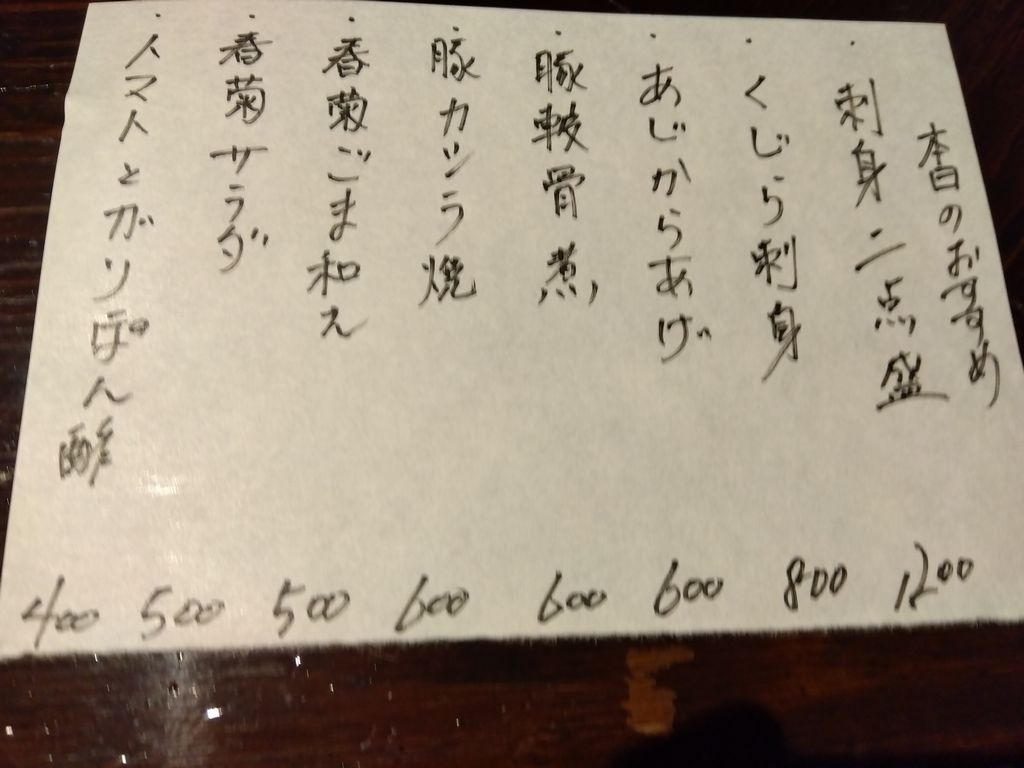 本日のおすすめ
・刺身二点盛 1200
・くじら刺身 800
・あじからあげ 600
・豚軟骨煮 600
・豚カシラ焼 600
・春菊ごま和え 500
・春菊サラダ 500
・トマトとガリぽん酢 400